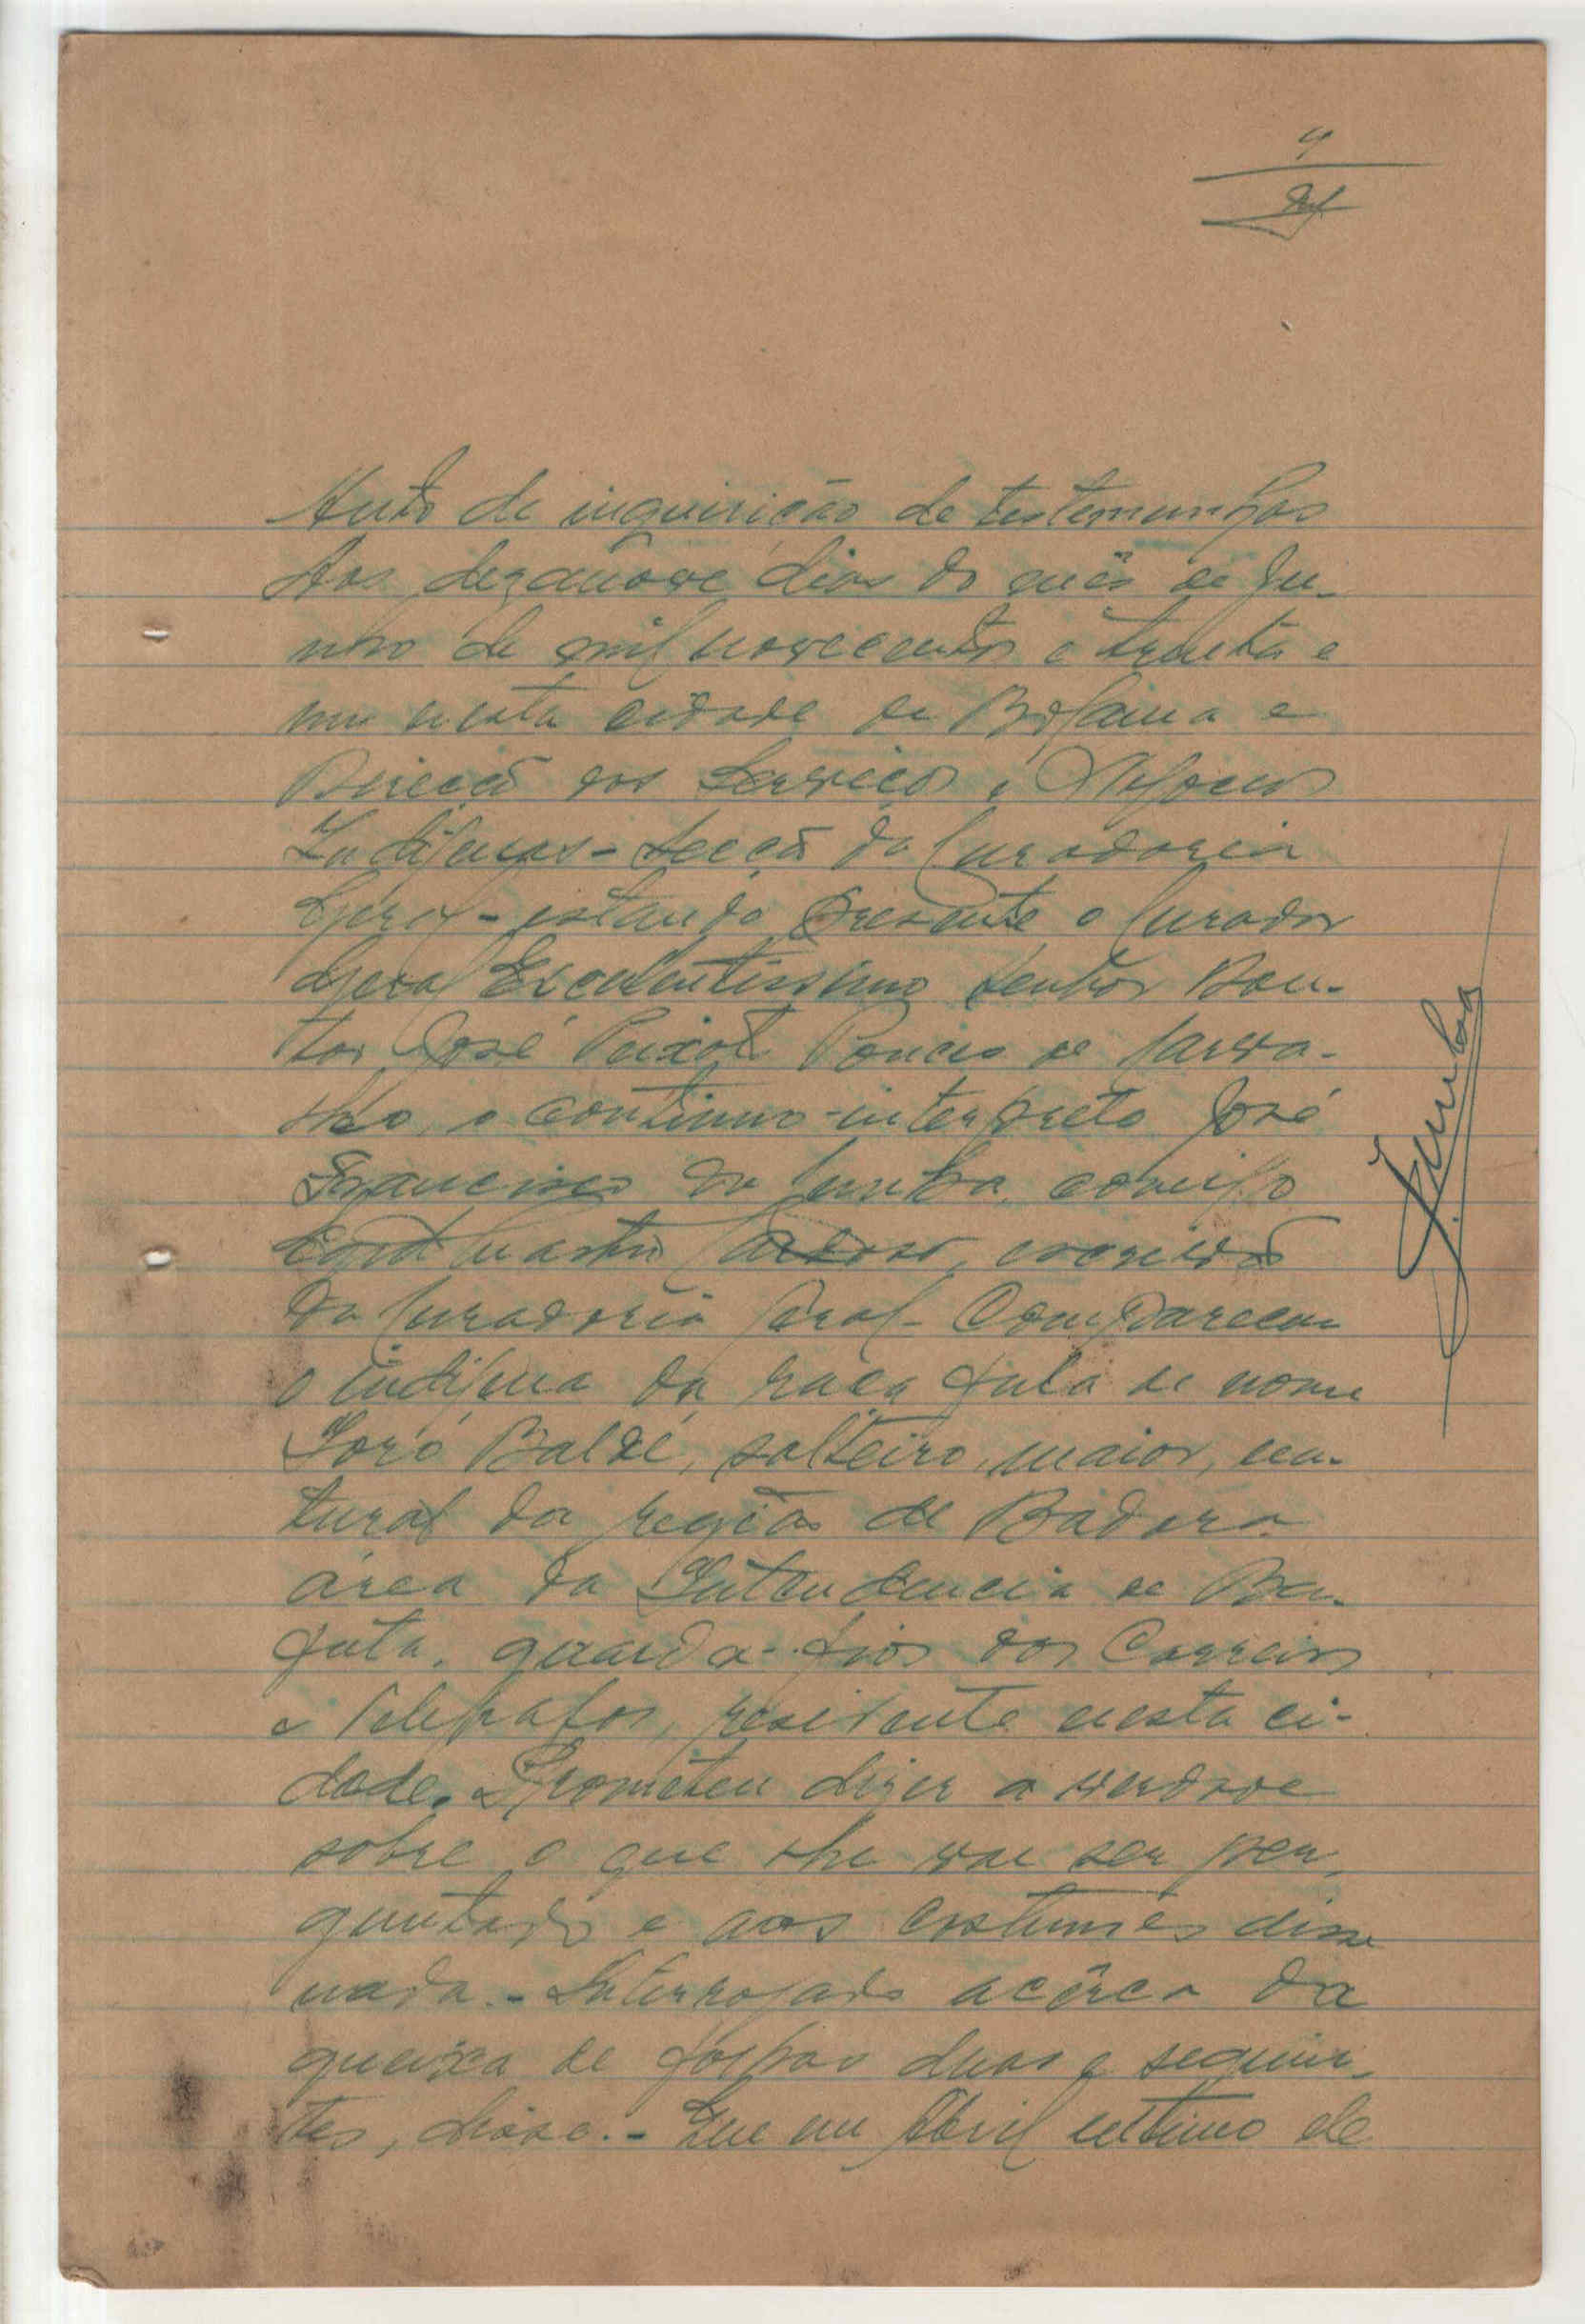 4
Auto de inquirição de testemunhas
Aos dezanove dias do mês de Ju-
nho de mil novecentos e trinta e
um nesta cidade de Bolama e
Direcção dos Serviços e Negocios
Indigenas - Secção da Curadoria
Geral - estando presente o Curador
Geral Excelentissimo Senhor Dou-
tor José Peixoto Ponces de Carva-
lho, o continuo-interprete José
Francisco da Cunha, comigo
Cardoso, escrivão
da Curadoria Geral - Compareceu
o indigena da raça fula de nome
Soró Baldé, solteiro, maior, na-
tural da região de Badora
área da Intendencia de Ba-
fatá, guarda-fios dos Correios
e Telegrafos, residente nesta ci-
dade. Prometeu dizer a verdade
sobre o que lhe vae ser per-
guntado e aos costumes disse
nada. - Interrogado acêrca da
queixa de folhas duas e seguin-
tes, disse. - Que em Abril ultimo ele
Cunha